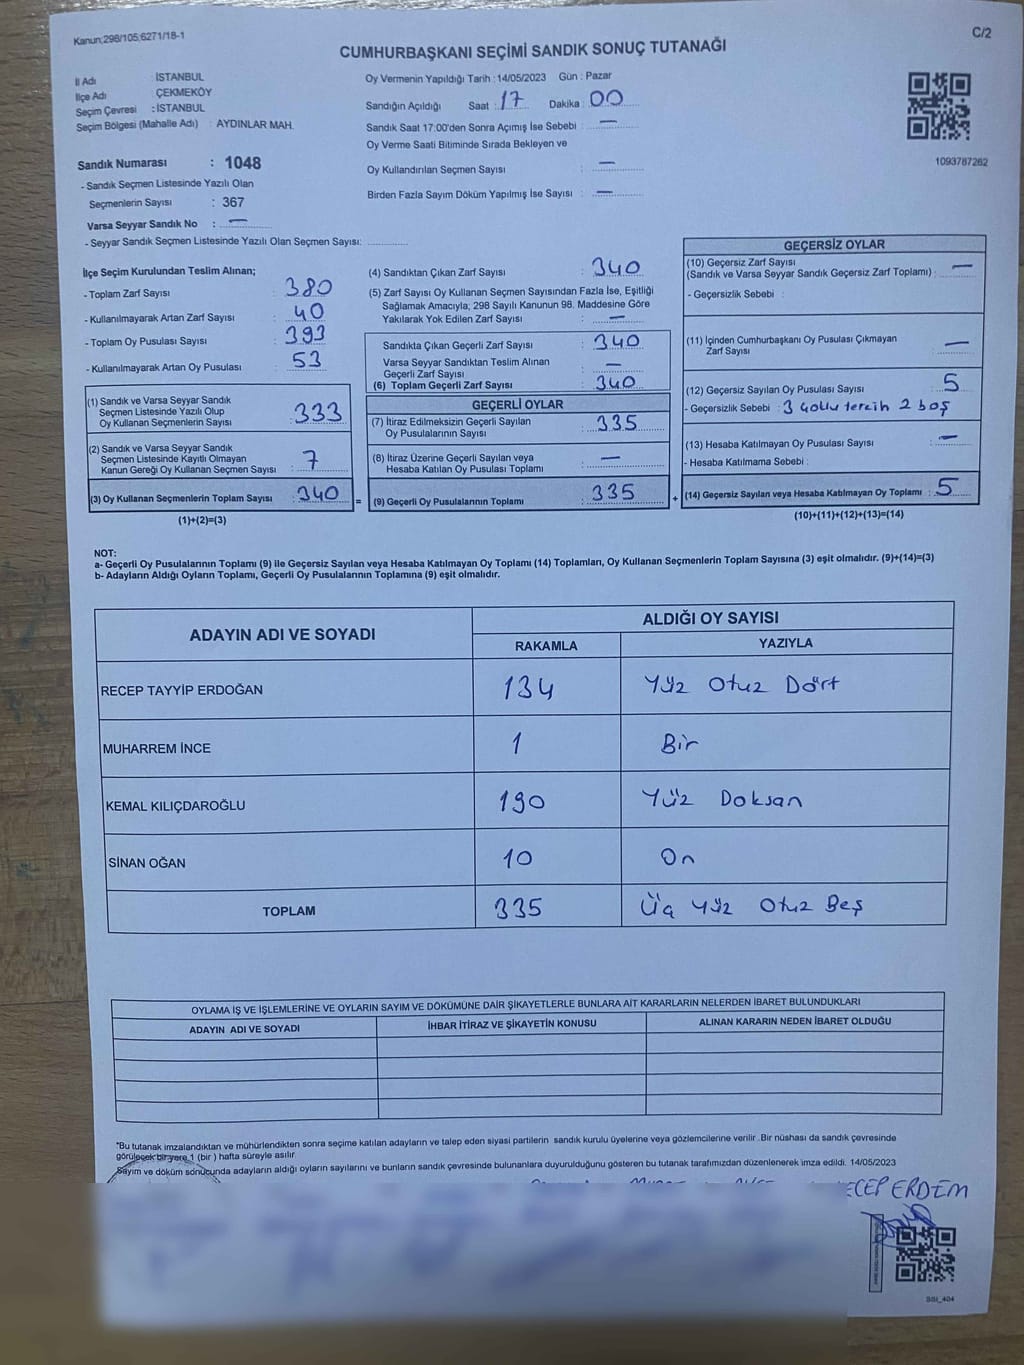 Kanun;298/105;6271/18-1
C/2
CUMHURBAŞKANI SEÇİMİ SANDIK SONUÇ TUTANAĞI
İl Adı : İSTANBUL
İlçe Adı : ÇEKMEKÖY
Seçim Çevresi : İSTANBUL
Seçim Bölgesi (Mahalle Adı) : AYDINLAR MAH.
Sandık Numarası : 1048
- Sandık Seçmen Listesinde Yazılı Olan
Seçmenlerin Sayısı : 367
Varsa Seyyar Sandık No : —
- Seyyar Sandık Seçmen Listesinde Yazılı Olan Seçmen Sayısı:
Oy Vermenin Yapıldığı Tarih : 14/05/2023 Gün : Pazar
Sandığın Açıldığı Saat : 17 Dakika : 00
Sandık Saat 17:00'den Sonra Açımış İse Sebebi : —
Oy Verme Saati Bitiminde Sırada Bekleyen ve
Oy Kullandırılan Seçmen Sayısı : —
Birden Fazla Sayım Döküm Yapılmış İse Sayısı : —
1093787262
İlçe Seçim Kurulundan Teslim Alınan;
- Toplam Zarf Sayısı : 380
- Kullanılmayarak Artan Zarf Sayısı : 40
- Toplam Oy Pusulası Sayısı : 393
- Kullanılmayarak Artan Oy Pusulası : 53
(1) Sandık ve Varsa Seyyar Sandık
Seçmen Listesinde Yazılı Olup
Oy Kullanan Seçmenlerin Sayısı : 333
(2) Sandık ve Varsa Seyyar Sandık
Seçmen Listesinde Kayıtlı Olmayan
Kanun Gereği Oy Kullanan Seçmen Sayısı : 7
(3) Oy Kullanan Seçmenlerin Toplam Sayısı : 340
(1)+(2)=(3)
=
(4) Sandıktan Çıkan Zarf Sayısı : 340
(5) Zarf Sayısı Oy Kullanan Seçmen Sayısından Fazla İse, Eşitliği
Sağlamak Amacıyla, 298 Sayılı Kanunun 98. Maddesine Göre
Yakılarak Yok Edilen Zarf Sayısı : —
Sandıkta Çıkan Geçerli Zarf Sayısı : 340
Varsa Seyyar Sandıktan Teslim Alınan
Geçerli Zarf Sayısı : —
(6) Toplam Geçerli Zarf Sayısı : 340
GEÇERLİ OYLAR
(7) İtiraz Edilmeksizin Geçerli Sayılan
Oy Pusulalarının Sayısı : 335
(8) İtiraz Üzerine Geçerli Sayılan veya
Hesaba Katılan Oy Pusulası Toplamı : —
(9) Geçerli Oy Pusulalarının Toplamı : 335
+
GEÇERSİZ OYLAR
(10) Geçersiz Zarf Sayısı
(Sandık ve Varsa Seyyar Sandık Geçersiz Zarf Toplamı) : —
- Geçersizlik Sebebi :
(11) İçinden Cumhurbaşkanı Oy Pusulası Çıkmayan
Zarf Sayısı : —
(12) Geçersiz Sayılan Oy Pusulası Sayısı : 5
- Geçersizlik Sebebi : 3 tercih 2 boş
(13) Hesaba Katılmayan Oy Pusulası Sayısı : —
- Hesaba Katılmama Sebebi :
(14) Geçersiz Sayılan veya Hesaba Katılmayan Oy Toplamı : 5
(10)+(11)+(12)+(13)=(14)
NOT:
a- Geçerli Oy Pusulalarının Toplamı (9) ile Geçersiz Sayılan veya Hesaba Katılmayan Oy Toplamı (14) Toplamları, Oy Kullanan Seçmenlerin Toplam Sayısına (3) eşit olmalıdır. (9)+(14)=(3)
b- Adayların Aldığı Oyların Toplamı, Geçerli Oy Pusulalarının Toplamına (9) eşit olmalıdır.
ADAYIN ADI VE SOYADI
ALDIĞI OY SAYISI
RAKAMLA YAZIYLA
RECEP TAYYİP ERDOĞAN 134 Yüz Otuz Dört
MUHARREM İNCE 1 Bir
KEMAL KILIÇDAROĞLU 190 Yüz Doksan
SİNAN OĞAN 10 On
TOPLAM 335 Üç Yüz Otuz Beş
OYLAMA İŞ VE İŞLEMLERİNE VE OYLARIN SAYIM VE DÖKÜMÜNE DAİR ŞİKAYETLERLE BUNLARA AİT KARARLARIN NELERDEN İBARET BULUNDUKLARI
ADAYIN ADI VE SOYADI İHBAR İTİRAZ VE ŞİKAYETİN KONUSU ALINAN KARARIN NEDEN İBARET OLDUĞU
*Bu tutanak imzalandıktan ve mühürlendikten sonra seçime katılan adayların ve talep eden siyasi partilerin sandık kurulu üyelerine veya gözlemcilerine verilir. Bir nüshası da sandık çevresinde
görülecek bir yere 1 (bir) hafta süreyle asılır.
Sayım ve döküm sonucunda adayların aldığı oyların sayılarını ve bunların sandık çevresinde bulunanlara duyurulduğunu gösteren bu tutanak tarafımızdan düzenlenerek imza edildi. 14/05/2023
ECEP ERDEM
SSI_404